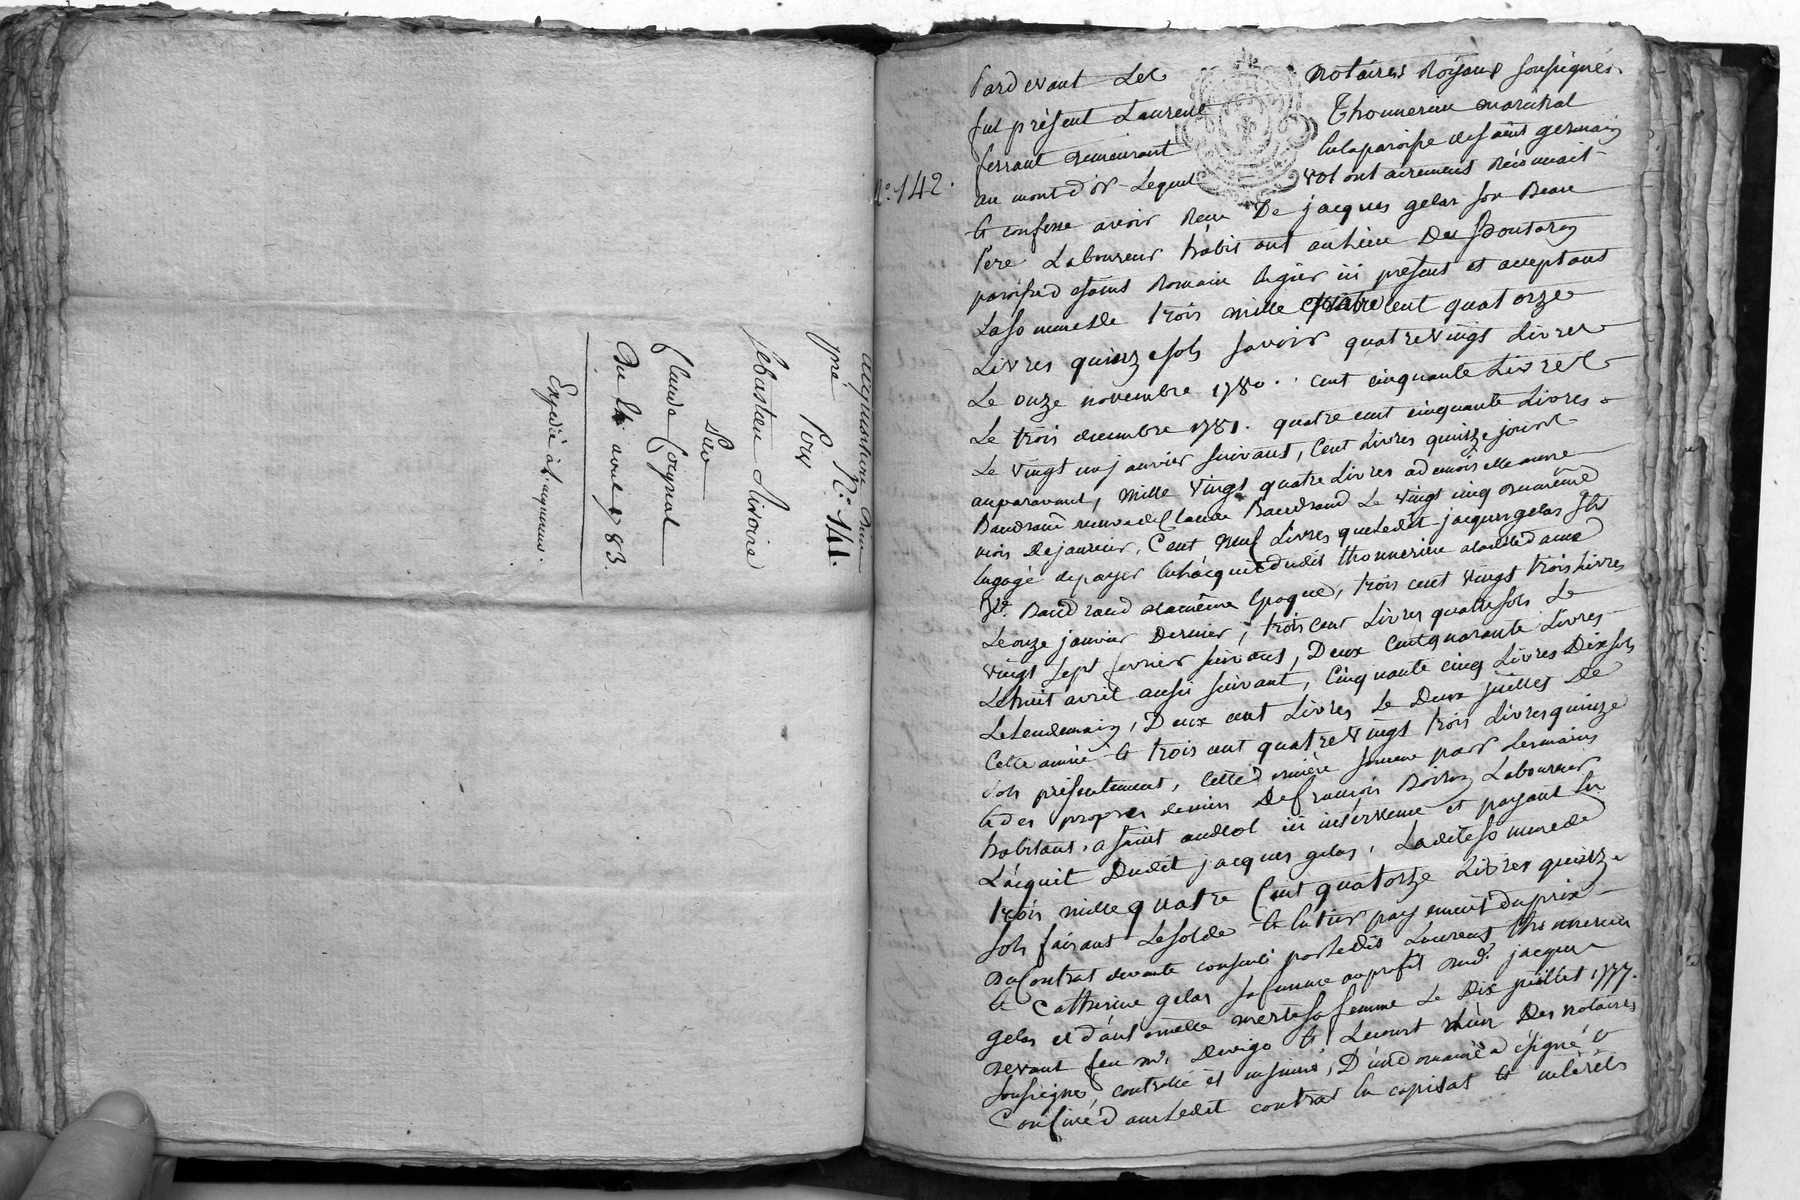 N.° 141.
acquisition d'un
pré
Pour
Sébastien Rivoire
Par
Claude Coignat
Du 14 avril 1783.
Expédié à l'acquereur.
N.° 142.
Pardevant Les notaires Royaux soussignés
fut présent Laurent Thonnerieu maréchal
ferrant demeurant en la paroisse de saint germain
au mont d'or Lequel volontairement Reconnait
et confesse avoir Reçu De jacques gelas son Beau
Pere Laboureur habitant au Lieu Du
paroisse de saint Romain ici présent et acceptant
La somme de trois mille quatre cent quatorze
Livres quinze sols savoir quatre vingt Livres
Le onze novembre 1780. cent cinquante Livres
Le trois decembre 1781. quatre cent cinquante Livres
Le vingt un janvier suivant, Cent Livres quinze jours
auparavant, mille vingt quatre Livres a demoiselle
Baudrand veuve de Claude Baudrand Le vingt cinq du même
mois de janvier, Cent neuf Livres que ledit jacques gelas s'est
engagé de payer en L'acquit dudit thonnerieu a ladite dame
Ve. Baudrand a la même Epoque, trois cent vingt trois Livres
Le onze janvier Dernier, trois cent Livres quatre sols Le
vingt sept fevrier suivant, Deux cent quarante Livres
Le huit avril aussi suivant, Cinquante cinq Livres Dix sols
Le Lendemain, Deux cent Livres Le Deux juillet De
Cette année et trois cent quatre vingt trois Livres quinze
sols présentement, Cette dernière somme par Les mains
et des propres deniers De françois Laboureur
habitant a saint andeol ici intervenu et payant En
L'acquit Dudit jacques gelas, Ladite somme de
trois mille quatre Cent quatorze Livres quinze
sols faisant Le solde et Entier payement du prix
Du Contrat de vente consenti par Ledit Laurent thonnerieu
et Catherine gelas sa femme au profit dud. jacques
gelas et d'antoinette sa femme Le Dix juillet 1777.
Devant feu me. Dewigo et Lecourt L'un Des notaires
soussignés, controllé et insinué, D'un domaine designé et
Confiné dans Ledit contrat En capital et intérêts